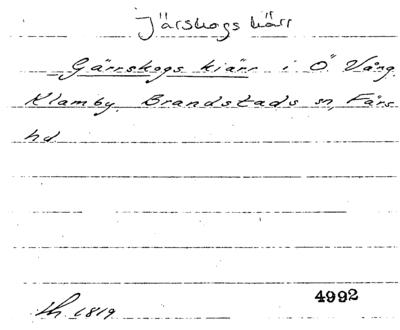 Järskogs kärr
Gärrskogs kiärr i Ö. Vång.
Klamby. Brandstads sn, Färs
hd
4992
lh. 1819